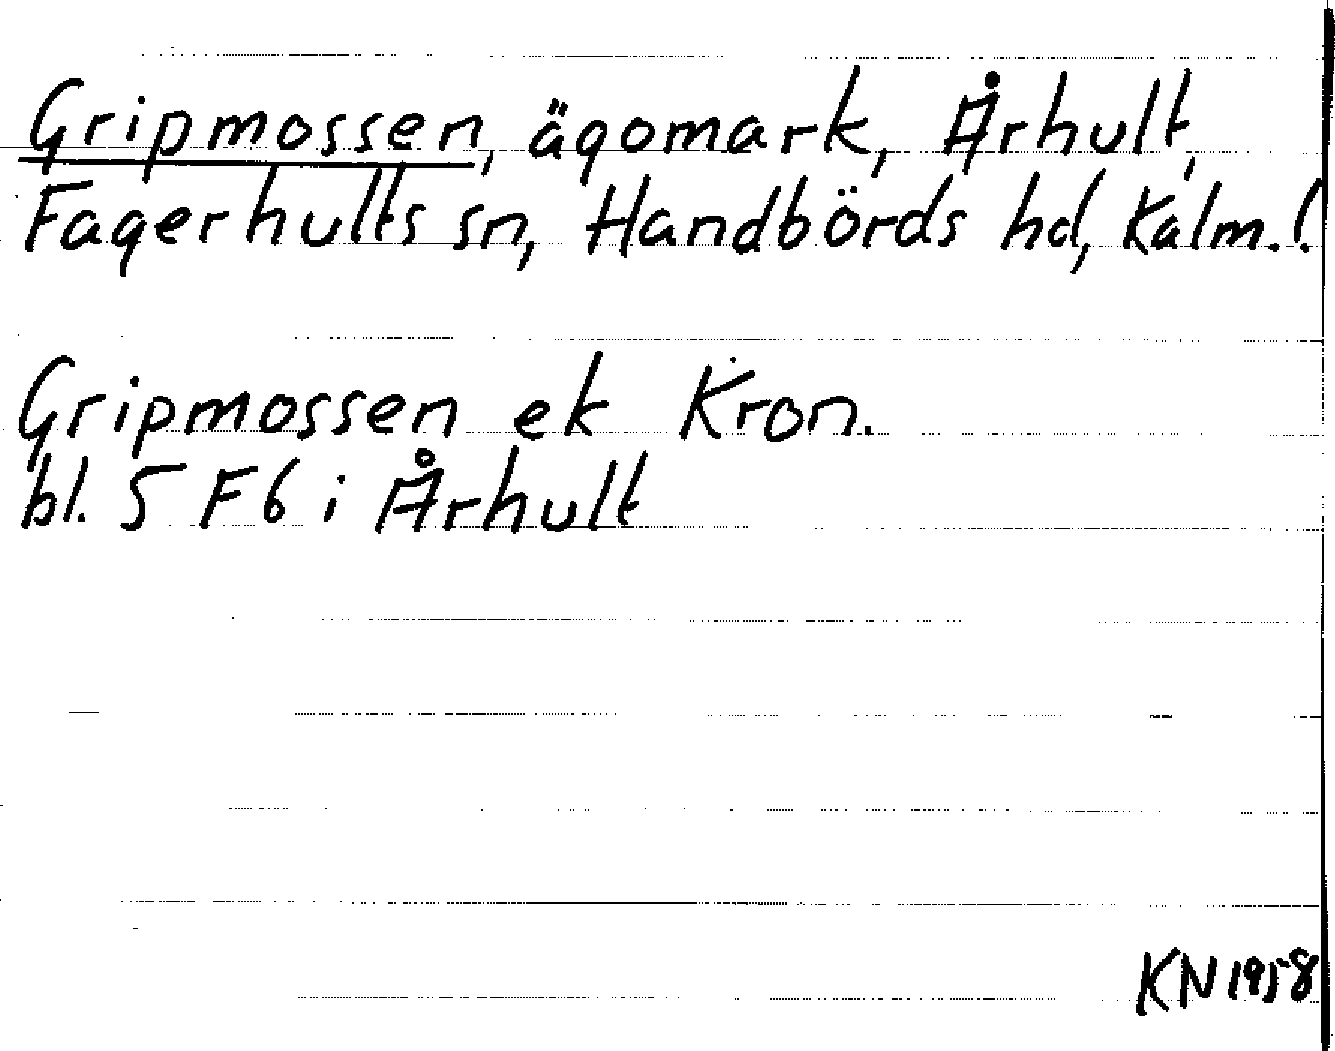 Gripmossen, ägomark, Århult,
Fagerhults sn, Handbörds hd, Kalm.l.
Gripmossen ek Kron.
bl. 5 F6 i Århult
KN 1958